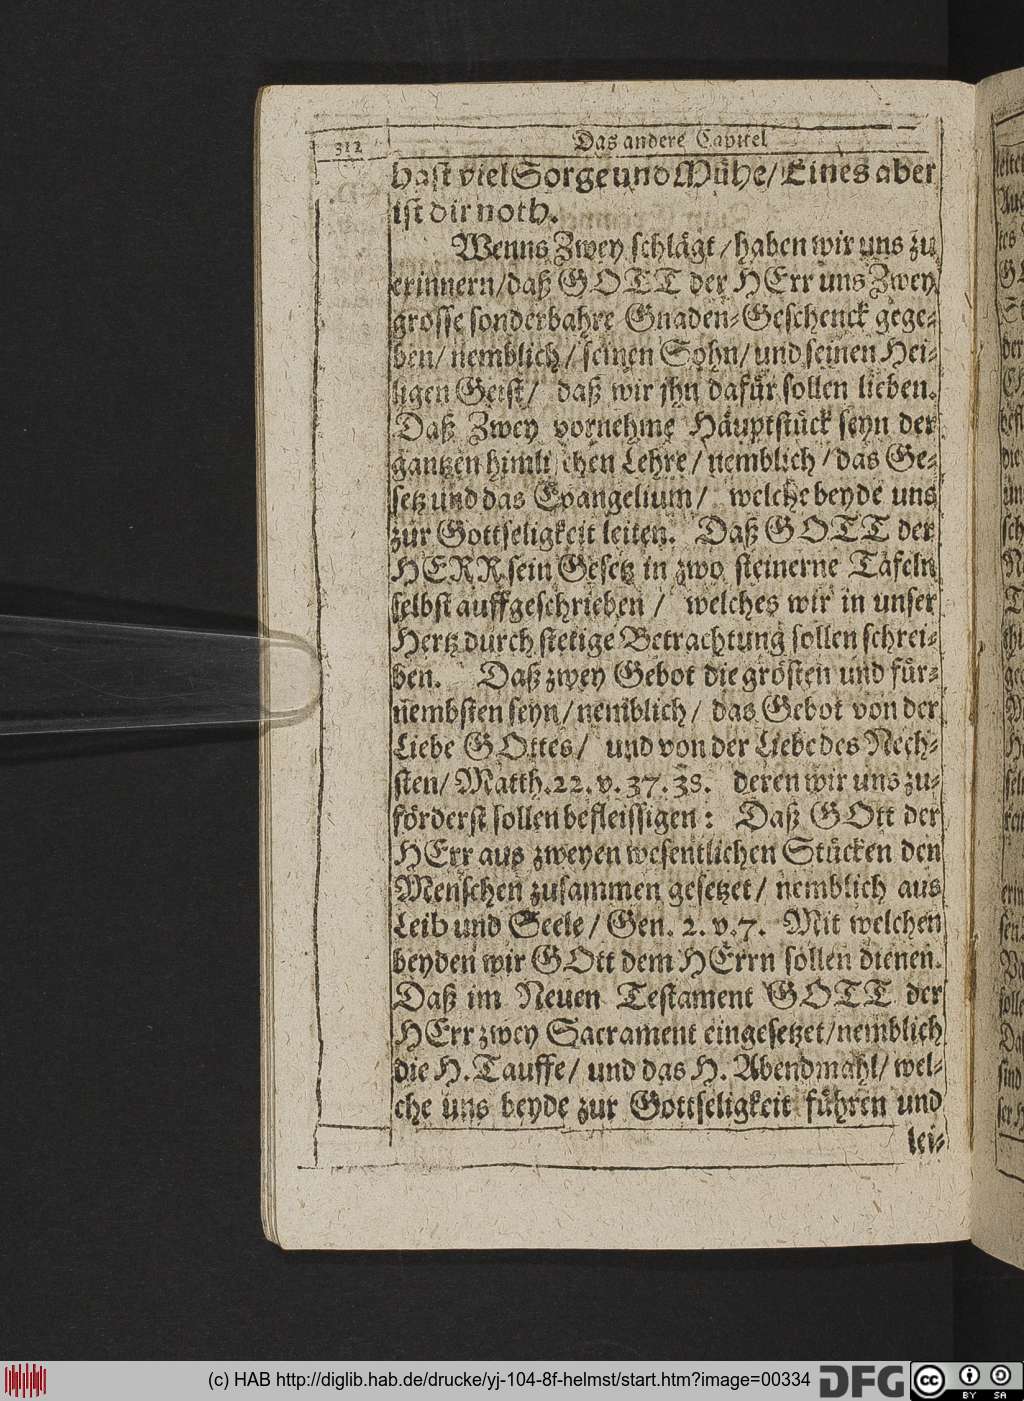 312
Das andere Capitel
hast viel Sorge und Mühe/ Eines aber
ist dir noth.
Wenns Zwey schlägt/ haben wir uns zu
erinnern/ daß GOTT der HErr uns Zwey
grosse sonderbahre Gnaden-Geschenck gege-
ben/ nemblich/ seinen Sohn/ und seinen Hei-
ligen Geist/ daß wir ihn dafür sollen lieben.
Daß Zwey vornehme Häuptstück seyn der
gantzen himlischen Lehre/ nemblich/ das Ge-
setz und das Evangelium/ welche beyde uns
zur Gottseligkeit leiten. Daß GOTT der
HERR sein Gesetz in zwo steinerne Tafeln
selbst auffgeschrieben/ welches wir in unser
Hertz durch stetige Betrachtung sollen schrei-
ben. Daß zwey Gebot die grösten und für-
nembsten seyn/ nemblich/ das Gebot von der
Liebe GOttes/ und von der Liebe des Nech-
sten/ Matth. 22. v. 37. 38. deren wir uns zu-
förderst sollen befleissigen: Daß GOtt der
HErr aus zweyen wesentlichen Stücken den
Menschen zusammen gesetzet/ nemblich aus
Leib und Seele/ Gen. 2. v. 7. Mit welchen
beyden wir GOtt dem HErrn sollen dienen.
Daß im Neuen Testament GOTT der
HErr zwey Sacrament eingesetzet/ nemblich
die H. Tauffe/ und das H. Abendmahl/ wel-
che uns beyde zur Gottseligkeit führen und
lei-
(c) HAB http://diglib.hab.de/drucke/yj-104-8f-helmst/start.htm?image=00334
DFG
cc
BY SA